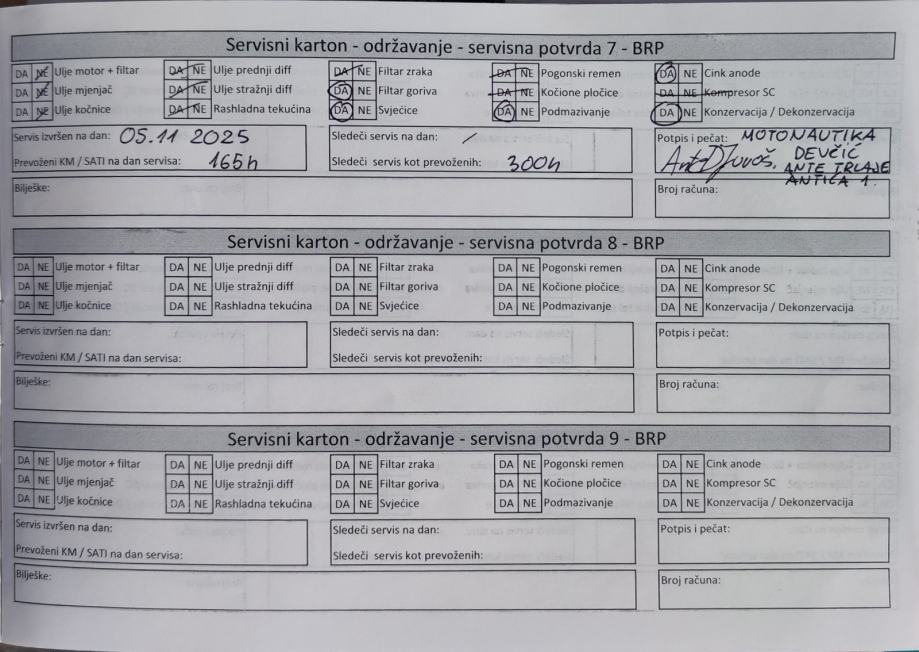 Servisni karton - održavanje - servisna potvrda 7 - BRP
DA NE Ulje motor + filtar DA NE Ulje prednji diff DA NE Filtar zraka DA NE Pogonski remen DA NE Cink anode
DA NE Ulje mjenjač DA NE Ulje stražnji diff DA NE Filtar goriva DA NE Kočione pločice DA NE Kompresor SC
DA NE Ulje kočnice DA NE Rashladna tekućina DA NE Svjećice DA NE Podmazivanje DA NE Konzervacija / Dekonzervacija
Servis izvršen na dan: 05.11 2025 Sledeći servis na dan: / Potpis i pečat: MOTONAUTIKA
DEVČIĆ
Prevoženi KM / SATI na dan servisa: 165h Sledeči servis kot prevoženih: 300h ANTE TRLAJE
ANTIĆA 1.
Bilješke: Broj računa:
Servisni karton - održavanje - servisna potvrda 8 - BRP
DA NE Ulje motor + filtar DA NE Ulje prednji diff DA NE Filtar zraka DA NE Pogonski remen DA NE Cink anode
DA NE Ulje mjenjač DA NE Ulje stražnji diff DA NE Filtar goriva DA NE Kočione pločice DA NE Kompresor SC
DA NE Ulje kočnice DA NE Rashladna tekućina DA NE Svjećice DA NE Podmazivanje DA NE Konzervacija / Dekonzervacija
Servis izvršen na dan: Sledeći servis na dan: Potpis i pečat:
Prevoženi KM / SATI na dan servisa: Sledeči servis kot prevoženih:
Bilješke: Broj računa:
Servisni karton - održavanje - servisna potvrda 9 - BRP
DA NE Ulje motor + filtar DA NE Ulje prednji diff DA NE Filtar zraka DA NE Pogonski remen DA NE Cink anode
DA NE Ulje mjenjač DA NE Ulje stražnji diff DA NE Filtar goriva DA NE Kočione pločice DA NE Kompresor SC
DA NE Ulje kočnice DA NE Rashladna tekućina DA NE Svjećice DA NE Podmazivanje DA NE Konzervacija / Dekonzervacija
Servis izvršen na dan: Sledeći servis na dan: Potpis i pečat:
Prevoženi KM / SATI na dan servisa: Sledeči servis kot prevoženih:
Bilješke: Broj računa: